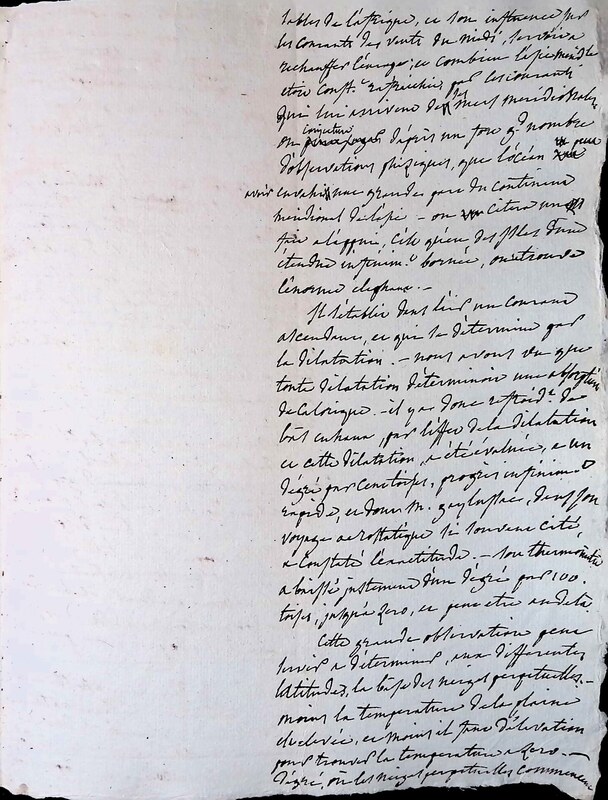 sables de l'afrique, et son influence sur
les courants des vents du midi, servir a
rechauffer l'europe; et combien l'asie mérid.le
etoit const.t rafraichie par les courants
qui lui arrivent des mers meridionales
on conjecture d'après un fort g.d nombre
d'observations phisiques, que l'océan peut
avoir envahi une grande partie du continent
méridional de l'asie - on citera un
fait a l'appui, c'est que dans des isles d'une
étendue infinim.t bornée, on trouve
l'énorme elephant. -
Il s'établit dans l'air un courant
ascendant, et qui se détermine par
la dilatation. - nous avons vu que
toute dilatation déterminoit une absorption
de calorique. - il y a donc refroid.t de
bas en haut, par l'effet de la dilatation
et cette dilatation, a été évaluée, a un
dégré par cent toises, progrès infiniment
rapide, et dont M. gay lussac, dans son
voyage aerostatique si souvent cité,
a constaté l'exactitude. - son thermometre
a baissé justement d'un dégré par 100.
toises, jusqu'a zero, et peut etre au dela
Cette grande observation peut
servir a déterminer, aux differentes
latitudes, la base des neiges perpetuelles. -
moins la temperature de la plaine
est elevée, et moins il faut d'élevation
pour trouver la temperature a zero -
dégré, où les neiges perpetuelles commencent